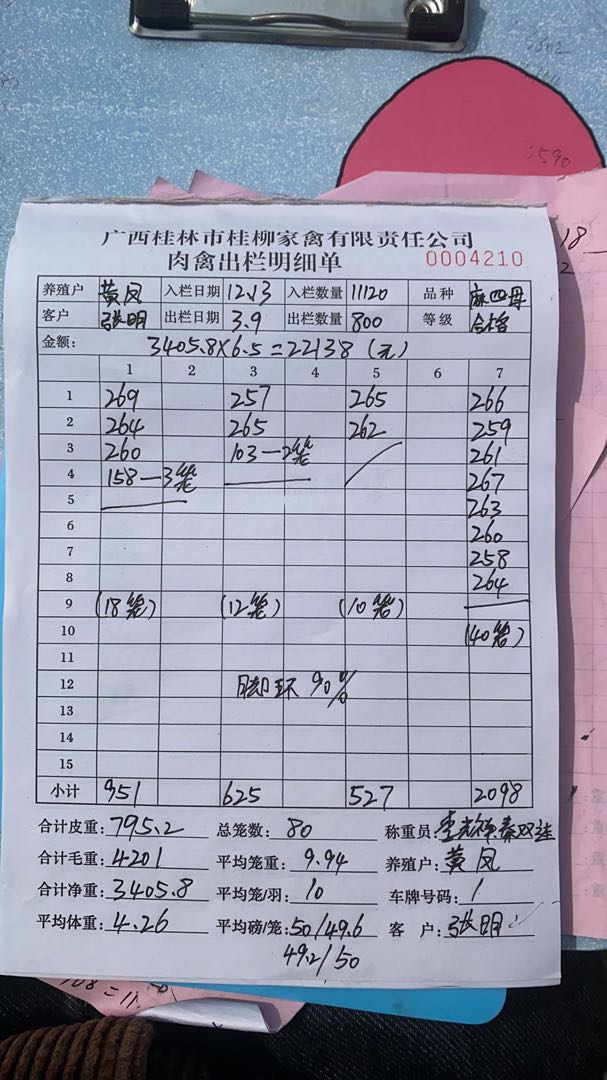 广西桂林市桂柳家禽有限责任公司
肉禽出栏明细单 0004210
养殖户 黄凤 入栏日期 12.13 入栏数量 11120 品种 麻四母
客户 张明 出栏日期 3.9 出栏数量 800 等级 合格
金额: 3405.8×6.5=22138(元)
1 2 3 4 5 6 7
1 269 257 265 266
2 264 265 262 259
3 260 103—2笼 261
4 158—3笼 267
5 263
6 260
7 258
8 264
9 (18笼) (12笼) (10笼)
10 (40笼)
11
12 脚环 90%
13
14
15
小计 951 625 527 2098
合计皮重: 795.2 总笼数: 80 称重员:
合计毛重: 4201 平均笼重: 9.94 养殖户: 黄凤
合计净重: 3405.8 平均笼/羽: 10 车牌号码: 1
平均体重: 4.26 平均磅/笼: 50/49.6 客户: 张明
49.2/50